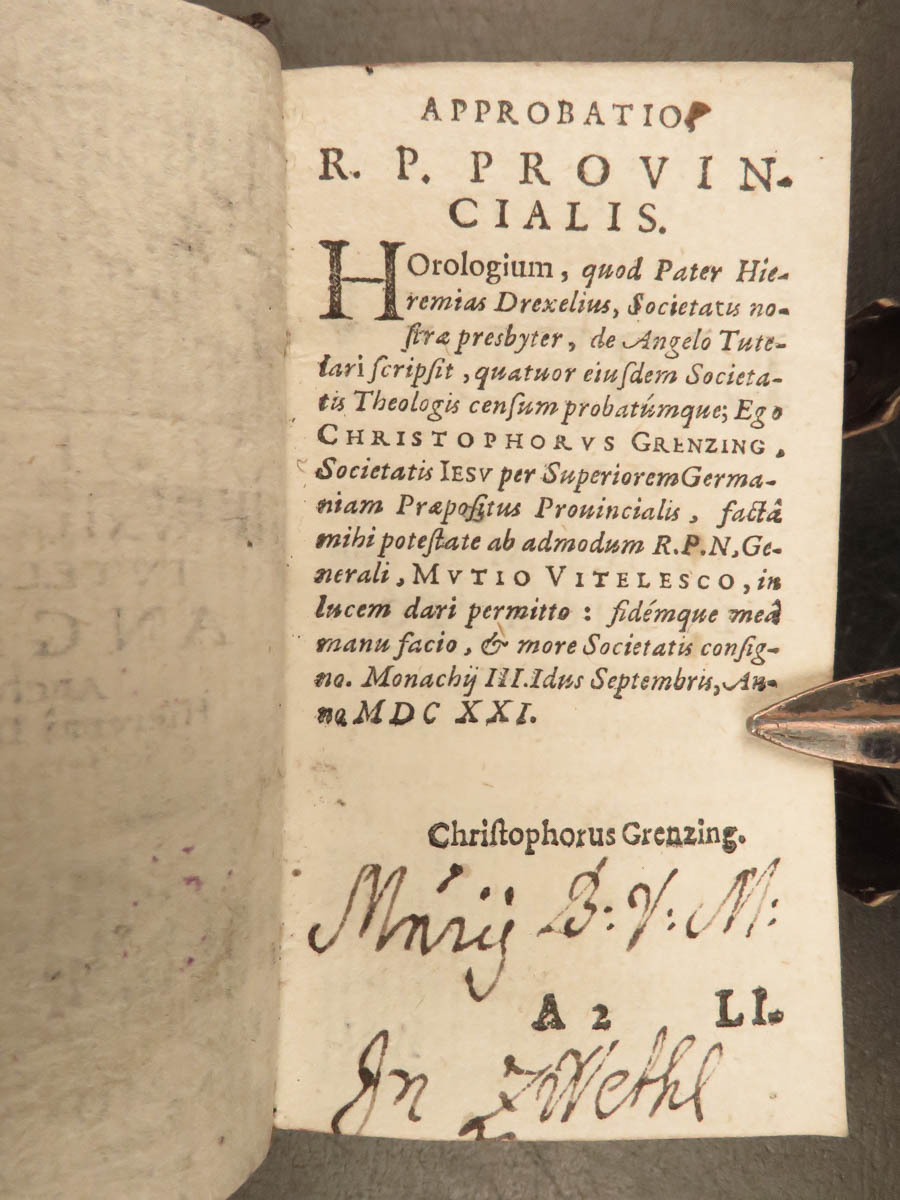 APPROBATIO,
R. P. PROVIN-
CIALIS.
HOrologium, quod Pater Hie-
remias Drexelius, Societatis no-
ſtræ presbyter, de Angelo Tute-
lari ſcripſit, quatuor eiuſdem Societa-
tis Theologis cenſum probatúmque; Ego
CHRISTOPHORVS GRENZING,
Societatis IESV per Superiorem Germa-
niam Præpoſitus Prouincialis, factâ
mihi poteſtate ab admodum R.P.N, Ge-
nerali, MVTIO VITELESCO, in
lucem dari permitto: fidémque meâ
manu facio, & more Societatis conſig-
no. Monachij III. Idus Septembris, An-
no MDC XXI.
Chriſtophorus Grenzing.
B: V: M:
A 2 LI-
In Zwethl